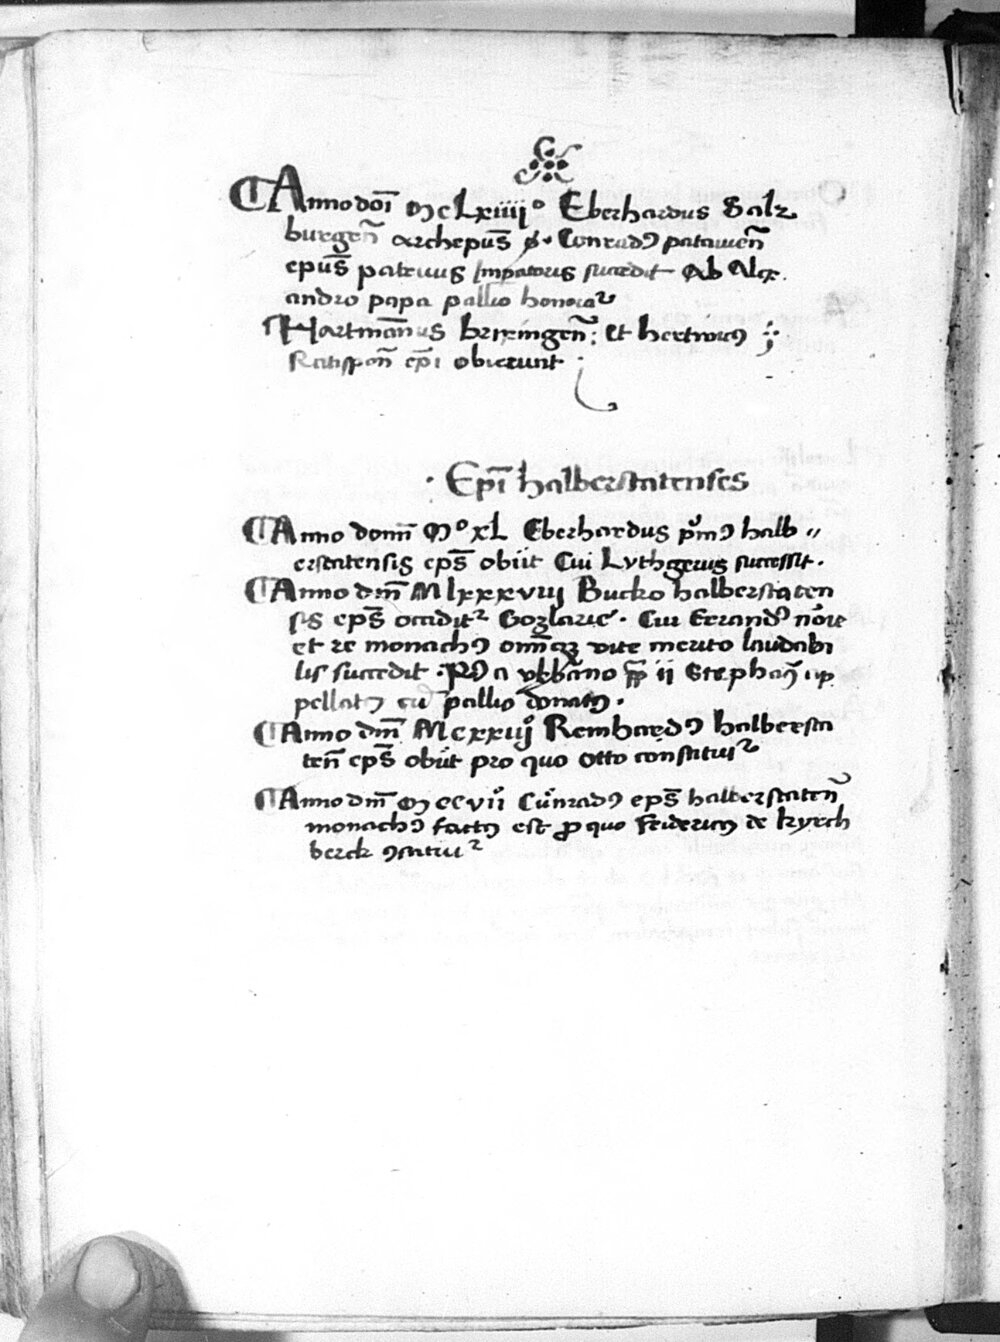 Anno doī Mclxiiiiº Eberhardus Salz
burgen̄ archiepus̄ ꝋ. Conradꝰ patauien̄
epus̄ patruus Impatoris succedit Ab Alex
andro papa pallio honoraꝉ
Hartman̄us brixingen̄: Et hertwicꝰ
Ratispon̄ ep̄i obierunt
Ep̄i halberstatenses
Anno domī Mº xl Eberhardus pͥmꝰ halb〃
erstatensis eps̄ obiit Cui Luthgerus successit.
Anno dm̄ Mlxxxviij Bucko halberstaten
sis eps̄ occidit᷑ Gozlarie. Cui Errandꝰ noīe
et re monachꝰ om̄iqꝫ vite merito laudabi
lis succedit. a vrbano pp̄ ii Stephanꝰ ap
pellatꝰ cū pallio donatꝰ.
Anno dm̄ Mcxxiijº Remhardꝰ halbersta
ten̄ eps̄ obiit pro quo Otto constituit᷑
Anno dm̄ Mccviiº Cunradꝰ eps̄ halberstaten̄
monachꝰ factꝰ est ꝓ quo fridericꝰ de kyrch
berck ꝯstituit᷑